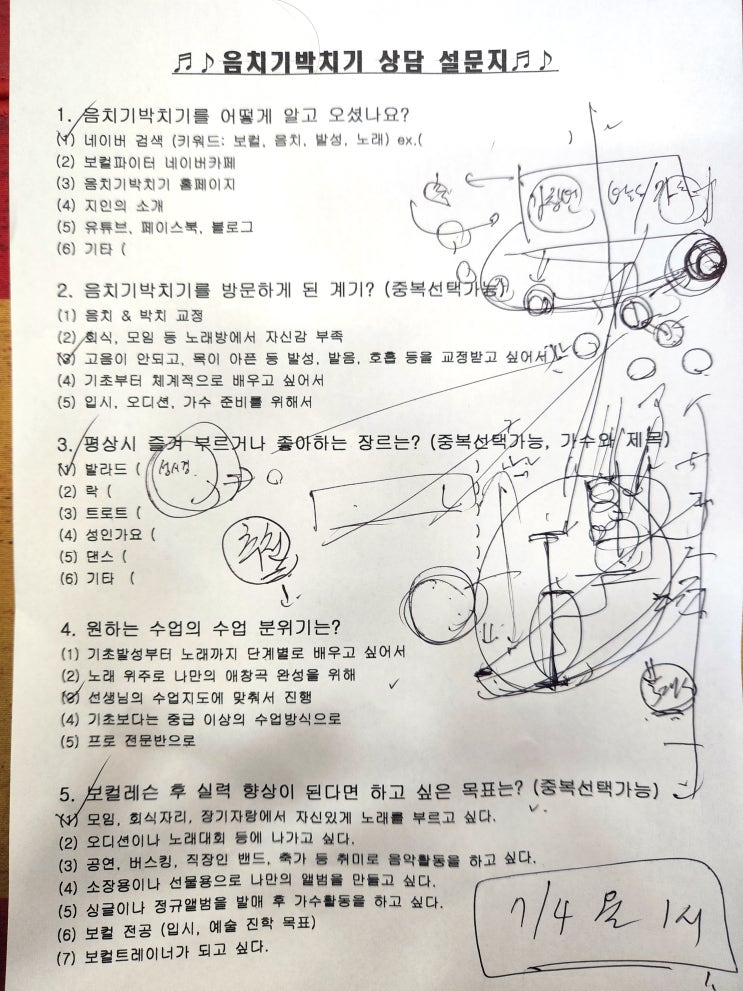 ♬♪음치기박치기 상담 설문지♬♪
1. 음치기박치기를 어떻게 알고 오셨나요?
(1) 네이버 검색 (키워드: 보컬, 음치, 발성, 노래) ex.( )
(2) 보컬파이터 네이버카페
(3) 음치기박치기 홈페이지
(4) 지인의 소개
(5) 유튜브, 페이스북, 블로그
(6) 기타 (
2. 음치기박치기를 방문하게 된 계기? (중복선택가능)
(1) 음치 & 박치 교정
(2) 회식, 모임 등 노래방에서 자신감 부족
(3) 고음이 안되고, 목이 아픈 등 발성, 발음, 호흡 등을 교정받고 싶어서
(4) 기초부터 체계적으로 배우고 싶어서
(5) 입시, 오디션, 가수 준비를 위해서
3. 평상시 즐겨 부르거나 좋아하는 장르는? (중복선택가능, 가수와 제목)
(1) 발라드 ( 성시경
(2) 락 (
(3) 트로트 (
(4) 성인가요 (
(5) 댄스 (
(6) 기타 (
추천
4. 원하는 수업의 수업 분위기는?
(1) 기초발성부터 노래까지 단계별로 배우고 싶어서
(2) 노래 위주로 나만의 애창곡 완성을 위해
(3) 선생님의 수업지도에 맞춰서 진행
(4) 기초보다는 중급 이상의 수업방식으로
(5) 프로 전문반으로
5. 보컬레슨 후 실력 향상이 된다면 하고 싶은 목표는? (중복선택가능)
(1) 모임, 회식자리, 장기자랑에서 자신있게 노래를 부르고 싶다.
(2) 오디션이나 노래대회 등에 나가고 싶다.
(3) 공연, 버스킹, 직장인 밴드, 축가 등 취미로 음악활동을 하고 싶다.
(4) 소장용이나 선물용으로 나만의 앨범을 만들고 싶다.
(5) 싱글이나 정규앨범을 발매 후 가수활동을 하고 싶다.
(6) 보컬 전공 (입시, 예술 진학 목표)
(7) 보컬트레이너가 되고 싶다.
7/4 월 1시